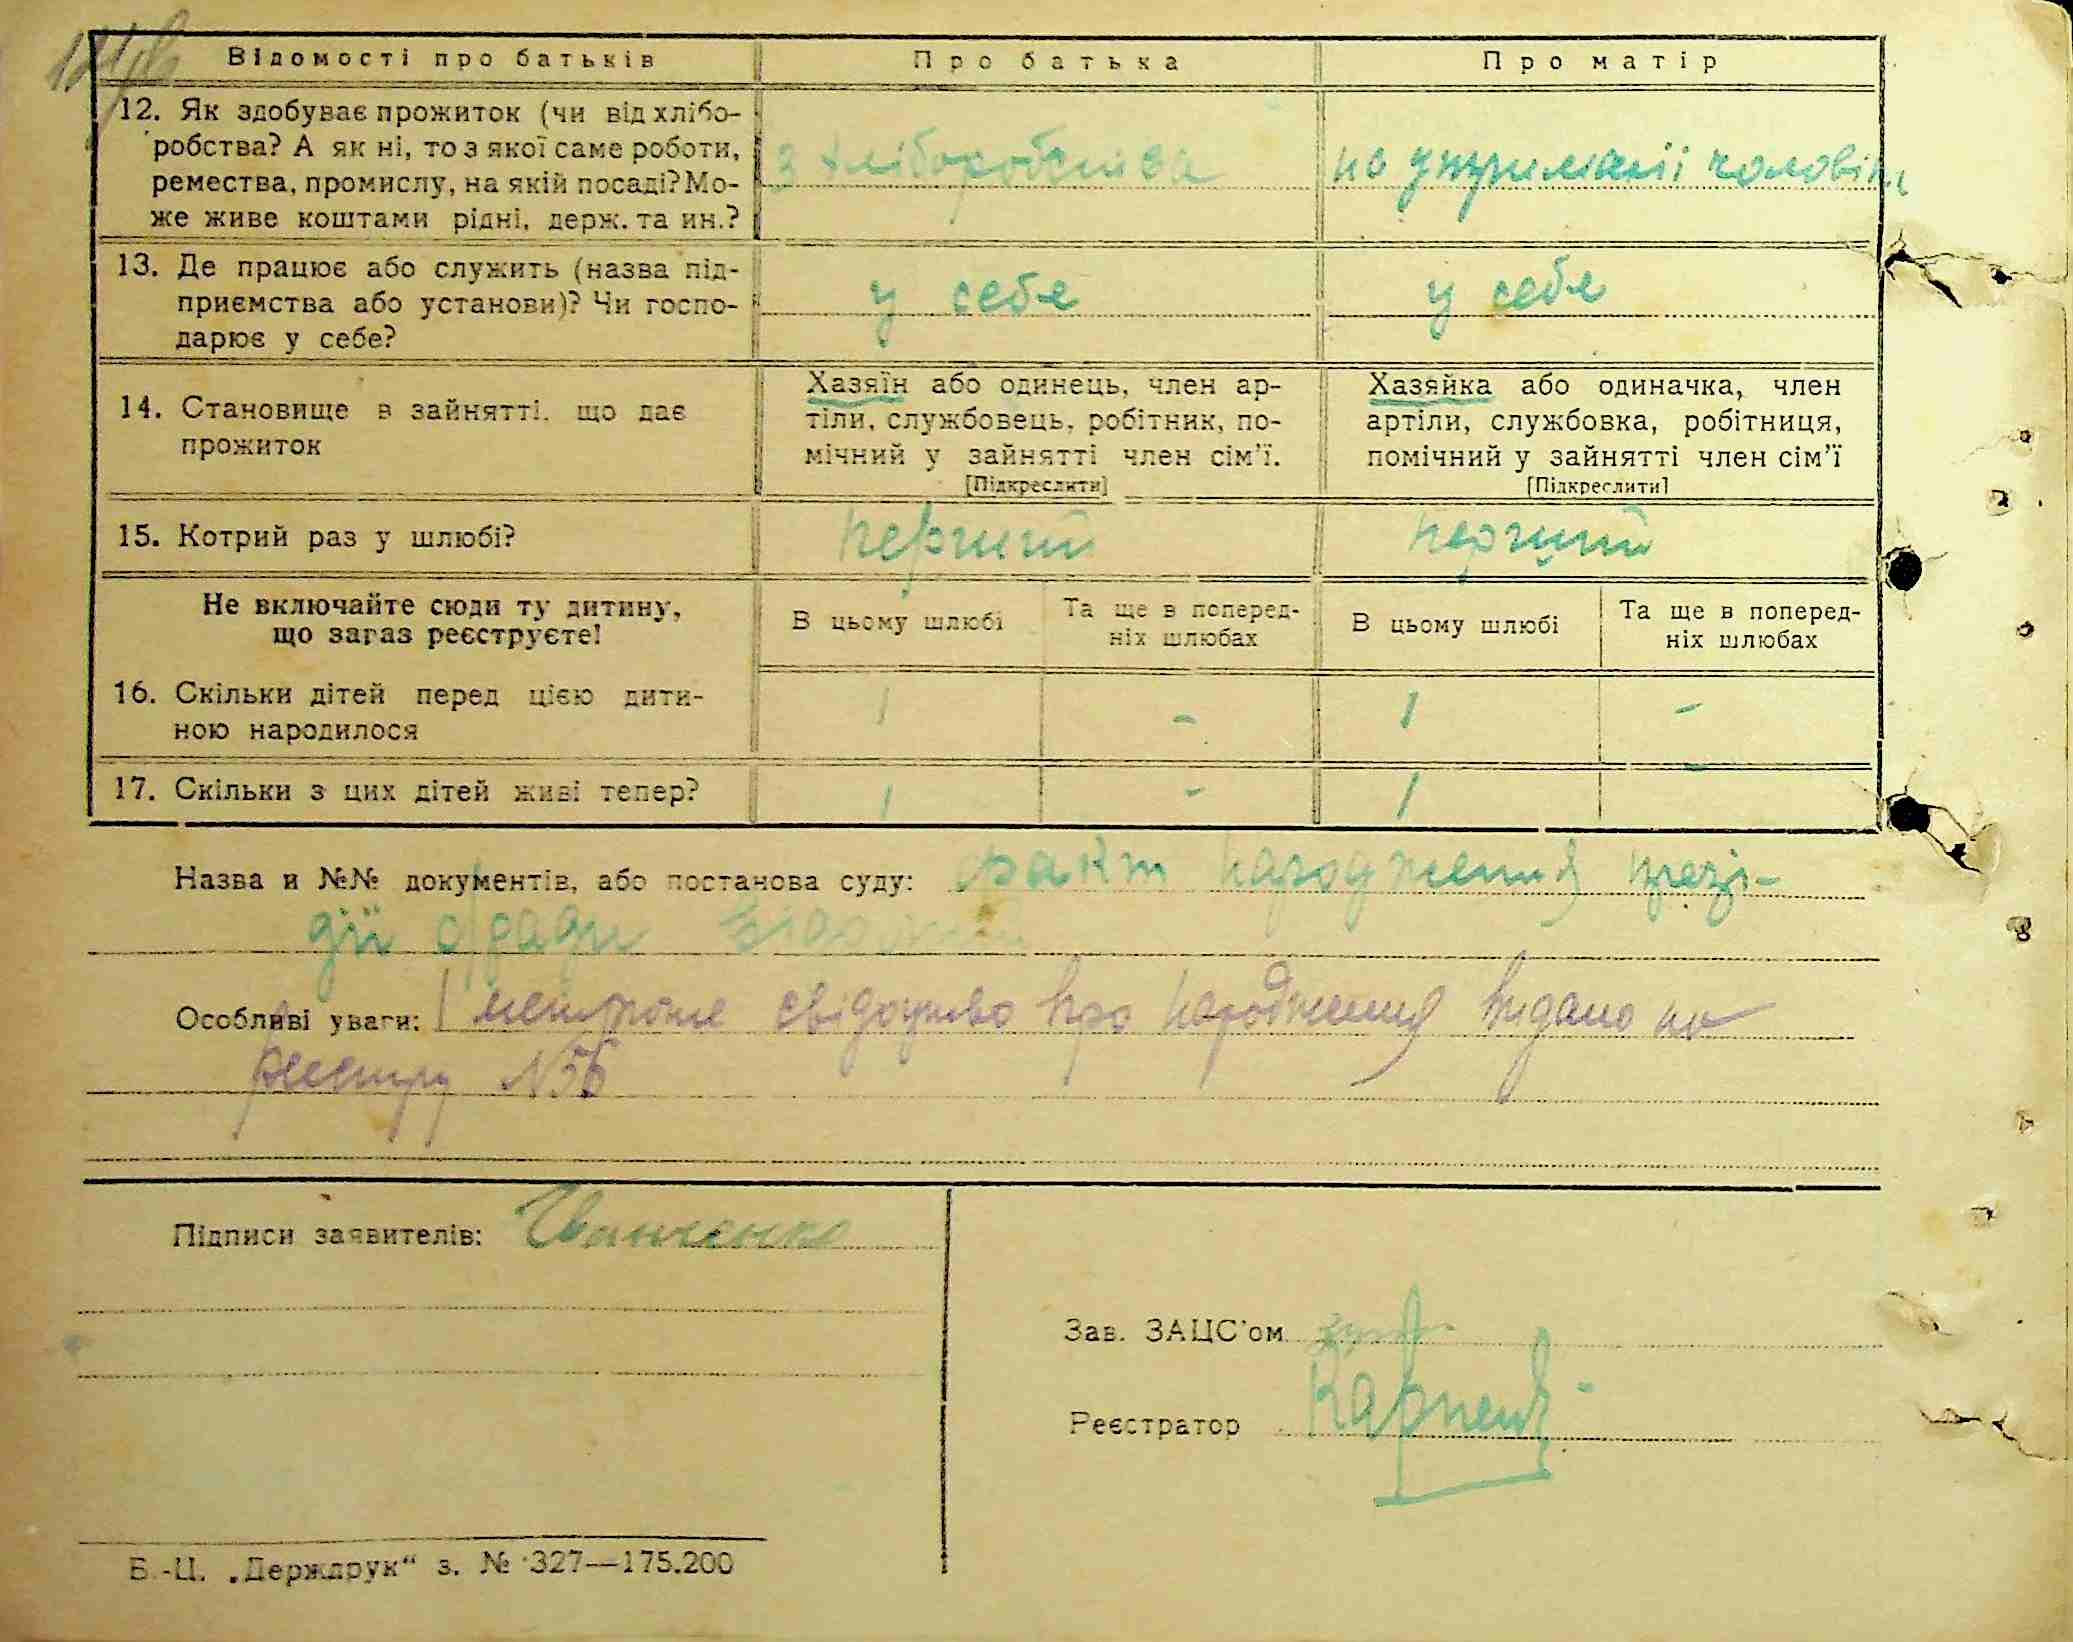 Відомості про батьків Про батька Про матір
12. Як здобуває прожиток (чи від хлібо-
робства? А як ні, то з якої саме роботи,
ремества, промислу, на якій посаді? Мо-
же живе коштами рідні, держ. та ин.?
з хліборобства
на утриманії чоловіка
13. Де працює або служить (назва під-
приємства або установи)? Чи госпо-
дарює у себе?
у себе
у себе
14. Становище в зайнятті, що дає
прожиток
Хазяїн або одинець, член ар-
тіли, службовець, робітник, по-
мічний у зайнятті член сім'ї.
[Підкреслити]
Хазяйка або одиначка, член
артіли, службовка, робітниця,
помічний у зайнятті член сім'ї
[Підкреслити]
15. Котрий раз у шлюбі? перший перший
Не включайте сюди ту дитину,
що зараз реєструєте!
В цьому шлюбі
Та ще в поперед-
ніх шлюбах
В цьому шлюбі
Та ще в поперед-
ніх шлюбах
16. Скільки дітей перед цією дити-
ною народилося
1 - 1 -
17. Скільки з цих дітей живі тепер? 1 - 1 -
Назва и №№ документів, або постанова суду: факт народження презі-
дії с/ради
Особливі уваги: свідоцтво про народження видано по
реестру №56
Підписи заявителів: Іванченко
Зав. ЗАЦС'ом
Реєстратор
Б.-Ц. „Держдрук“ з. № 327—175.200